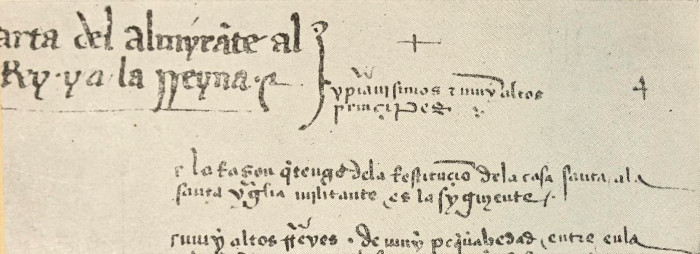 arta del almyrãte al
Rey · y a · la rreyna ·
xpianisimos z muy altos
prinçipes
4
e la rason q̃ tengo dela restituçiõ dela casa santa ala
santa yglia militante es la syguiente
muy altos rreyes · de muy peq̃ña hedad entre enla